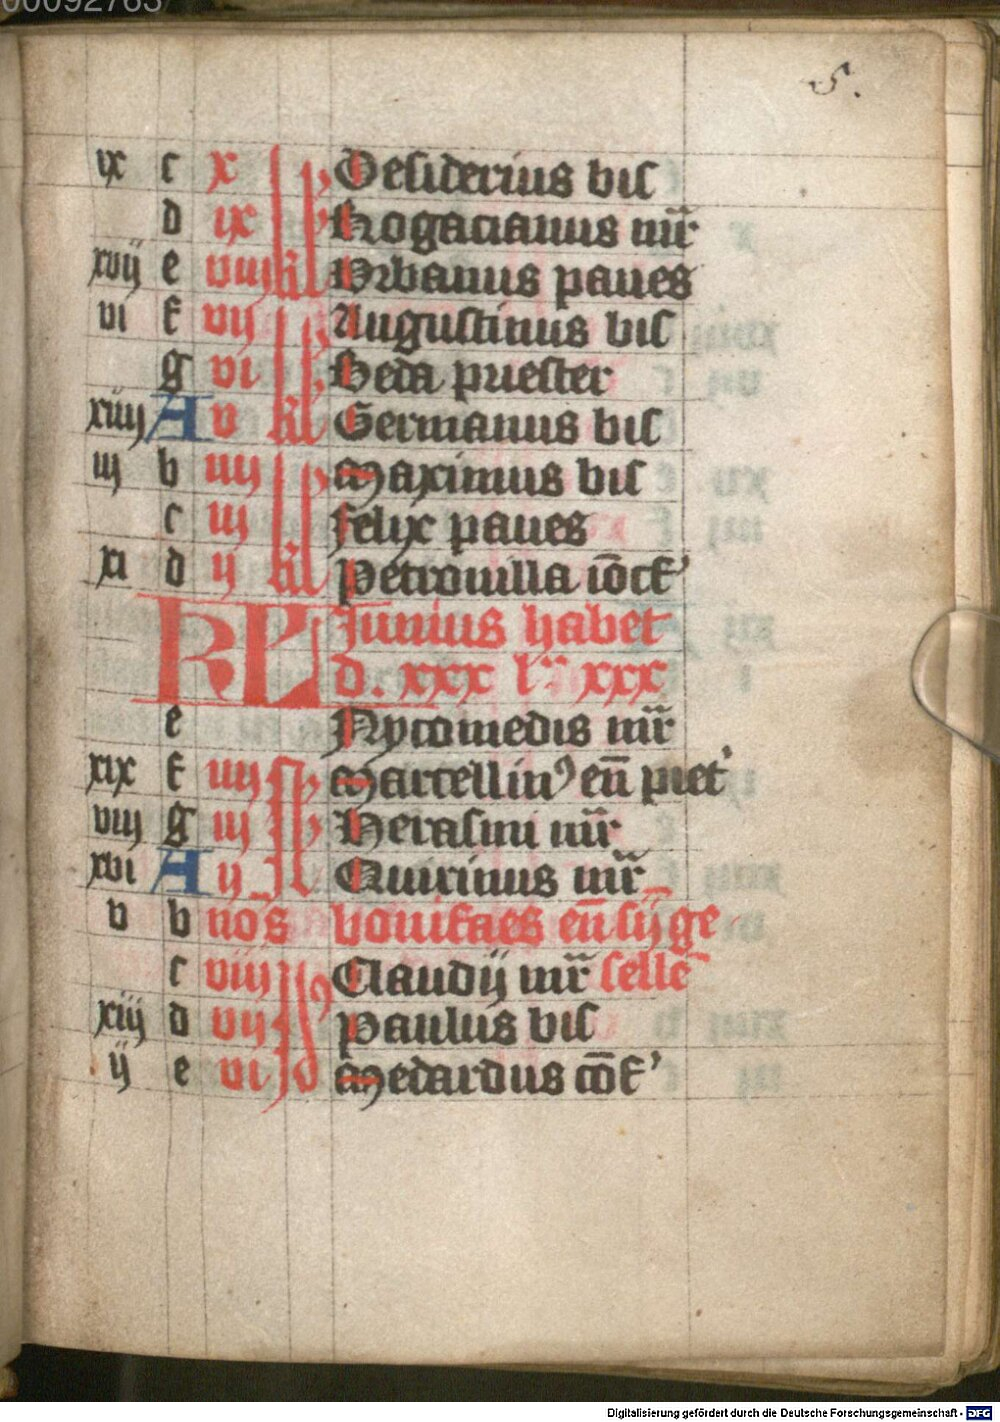 00092763
5.
ix c x kl Desiderius bis
d ix kl Rogacianus mr̄
xvij e viij kl Vrbanus paues
vi f vij kl Augustinus bis
g vi kl Beda priester
xiiij A v kl Germanus bis
iij b iiij kl Maximus bis
c iij kl felix paues
xi d ij kl Petronilla iōcf'
KL Junius habet
d. xxx l'' xxx
e Nycomedis mr̄
xix f iiij Marcellin⁹ eñ piet'
viij g iij Herasmi mr̄
xvi A ij Quirinus mr̄
v b no͞s bonifaes eñ sij̄ ge
c viij Claudij mr̄ selle͞
xiij d vij Paulus bis
ij e vi Medardus co͞f'
Digitalisierung gefördert durch die Deutsche Forschungsgemeinschaft - DFG